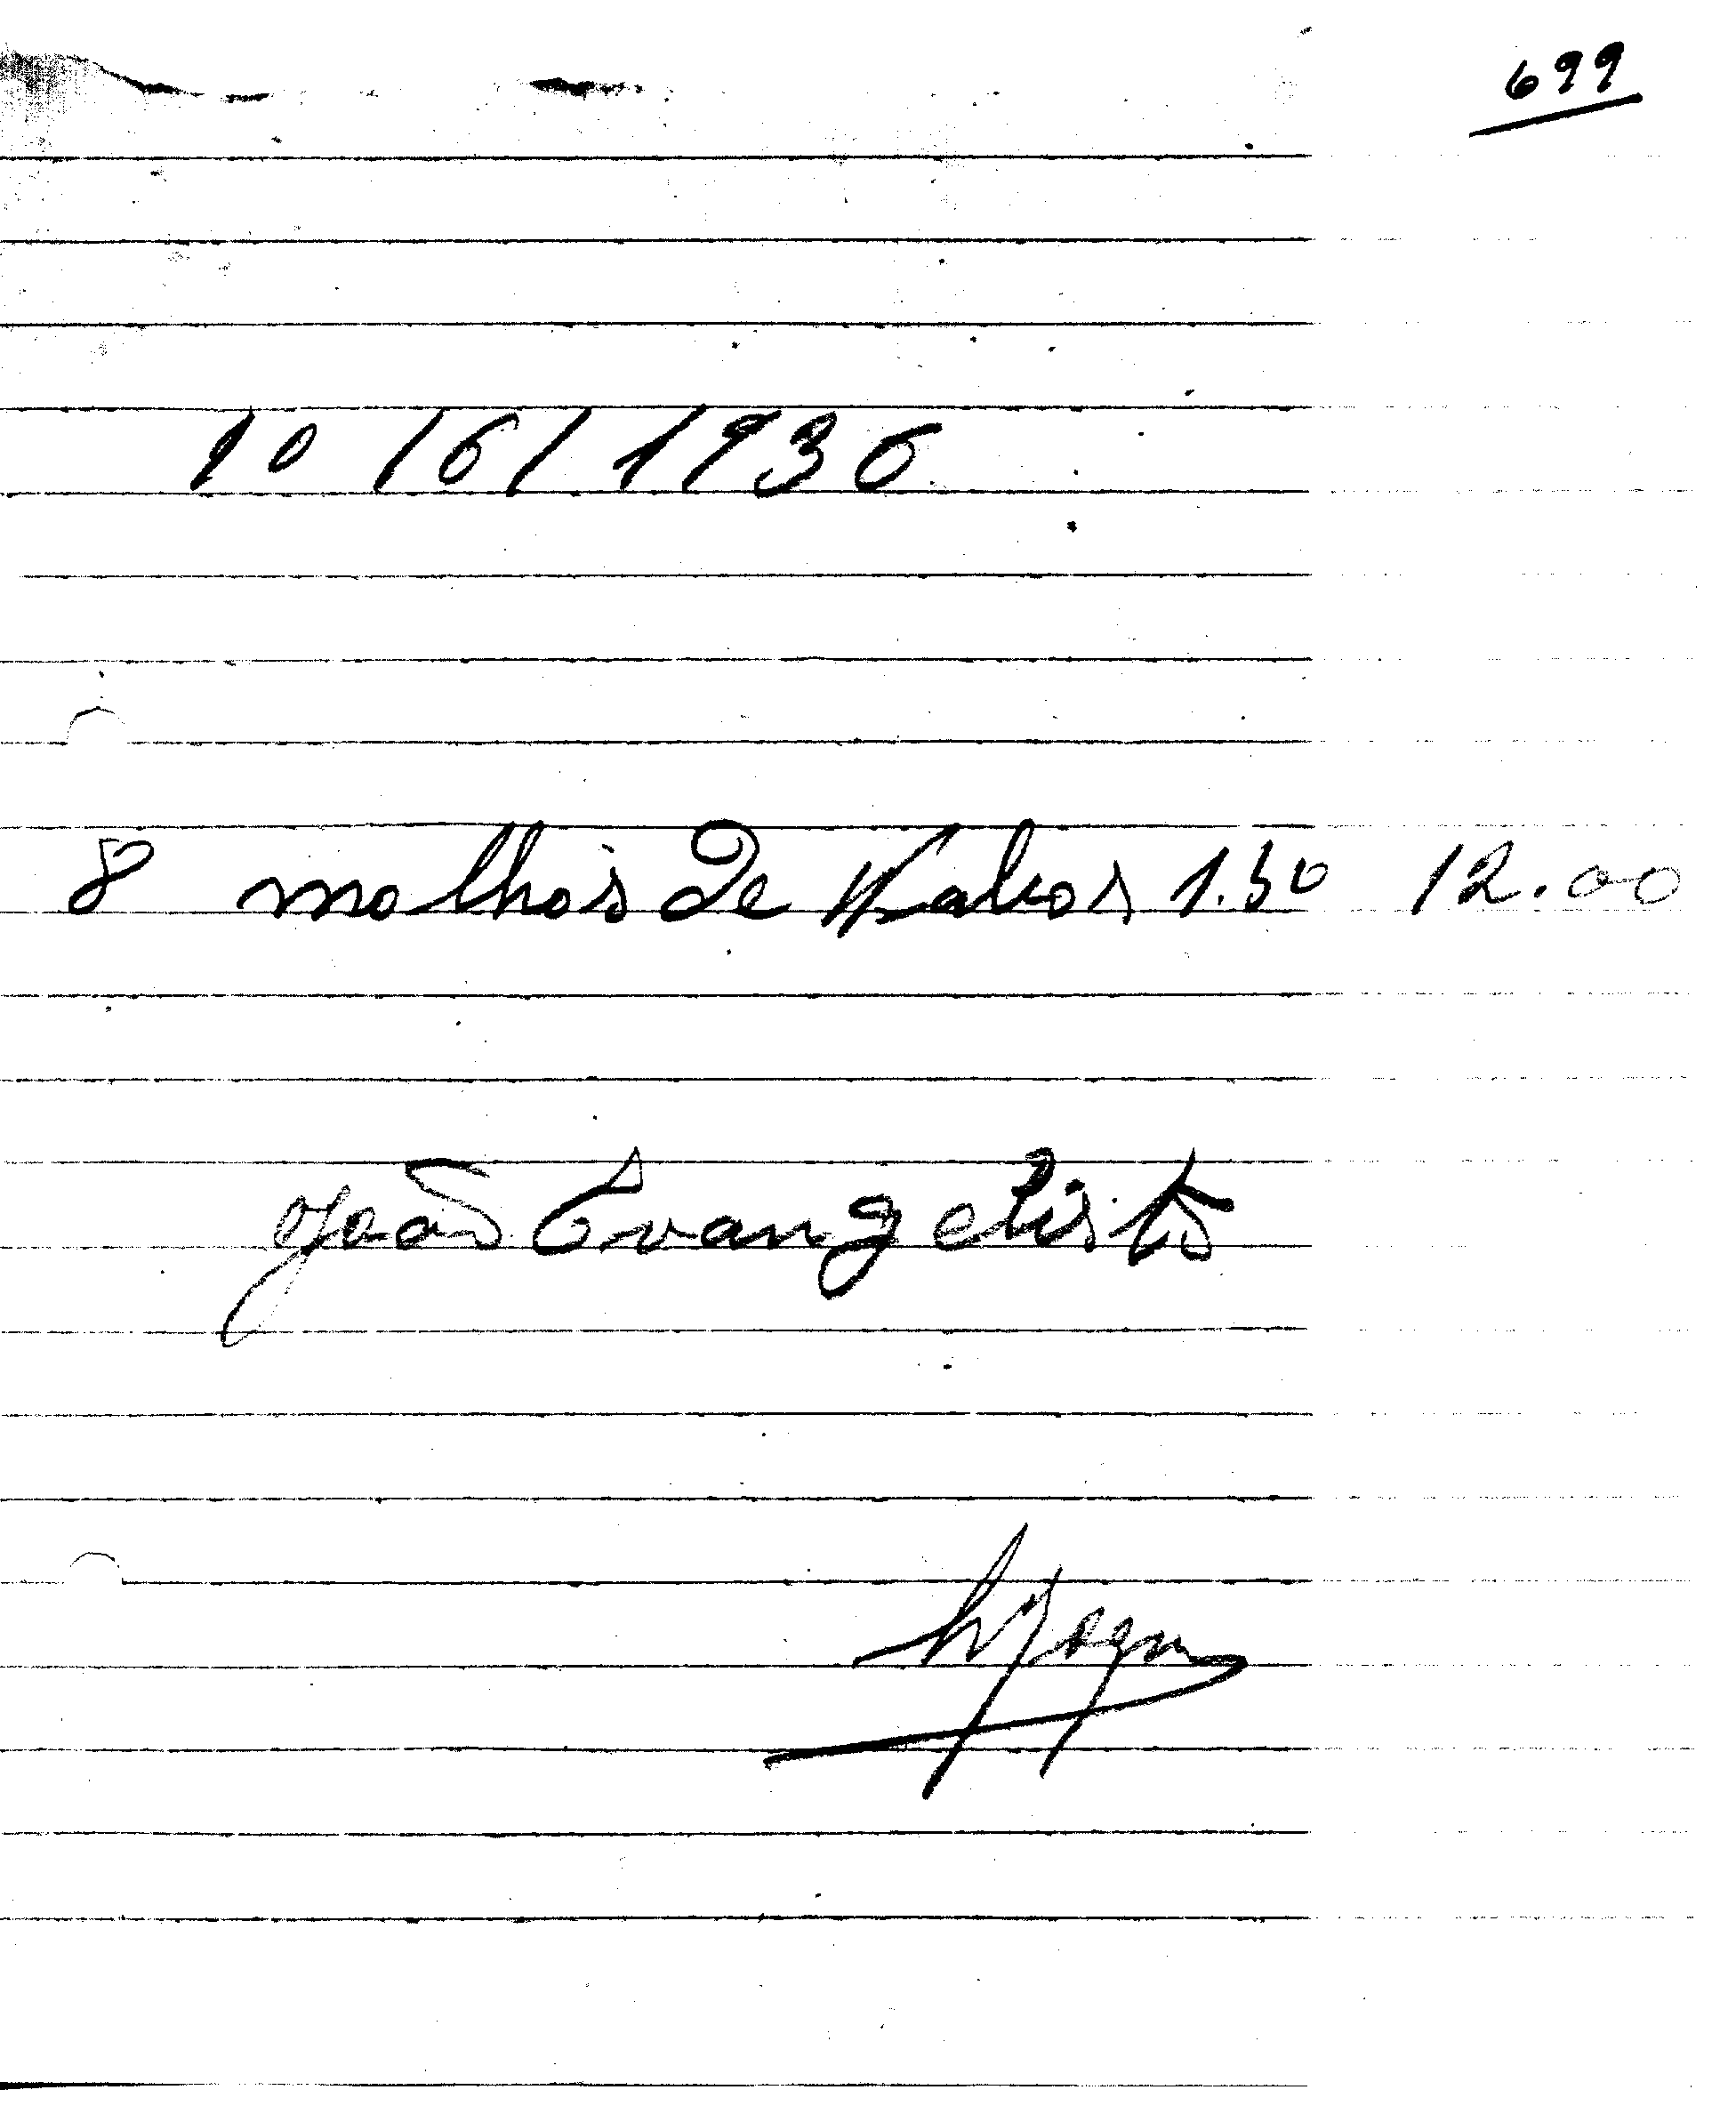 699
10/6/1936
8 molhos de 1.50 12.00
João Evangelista